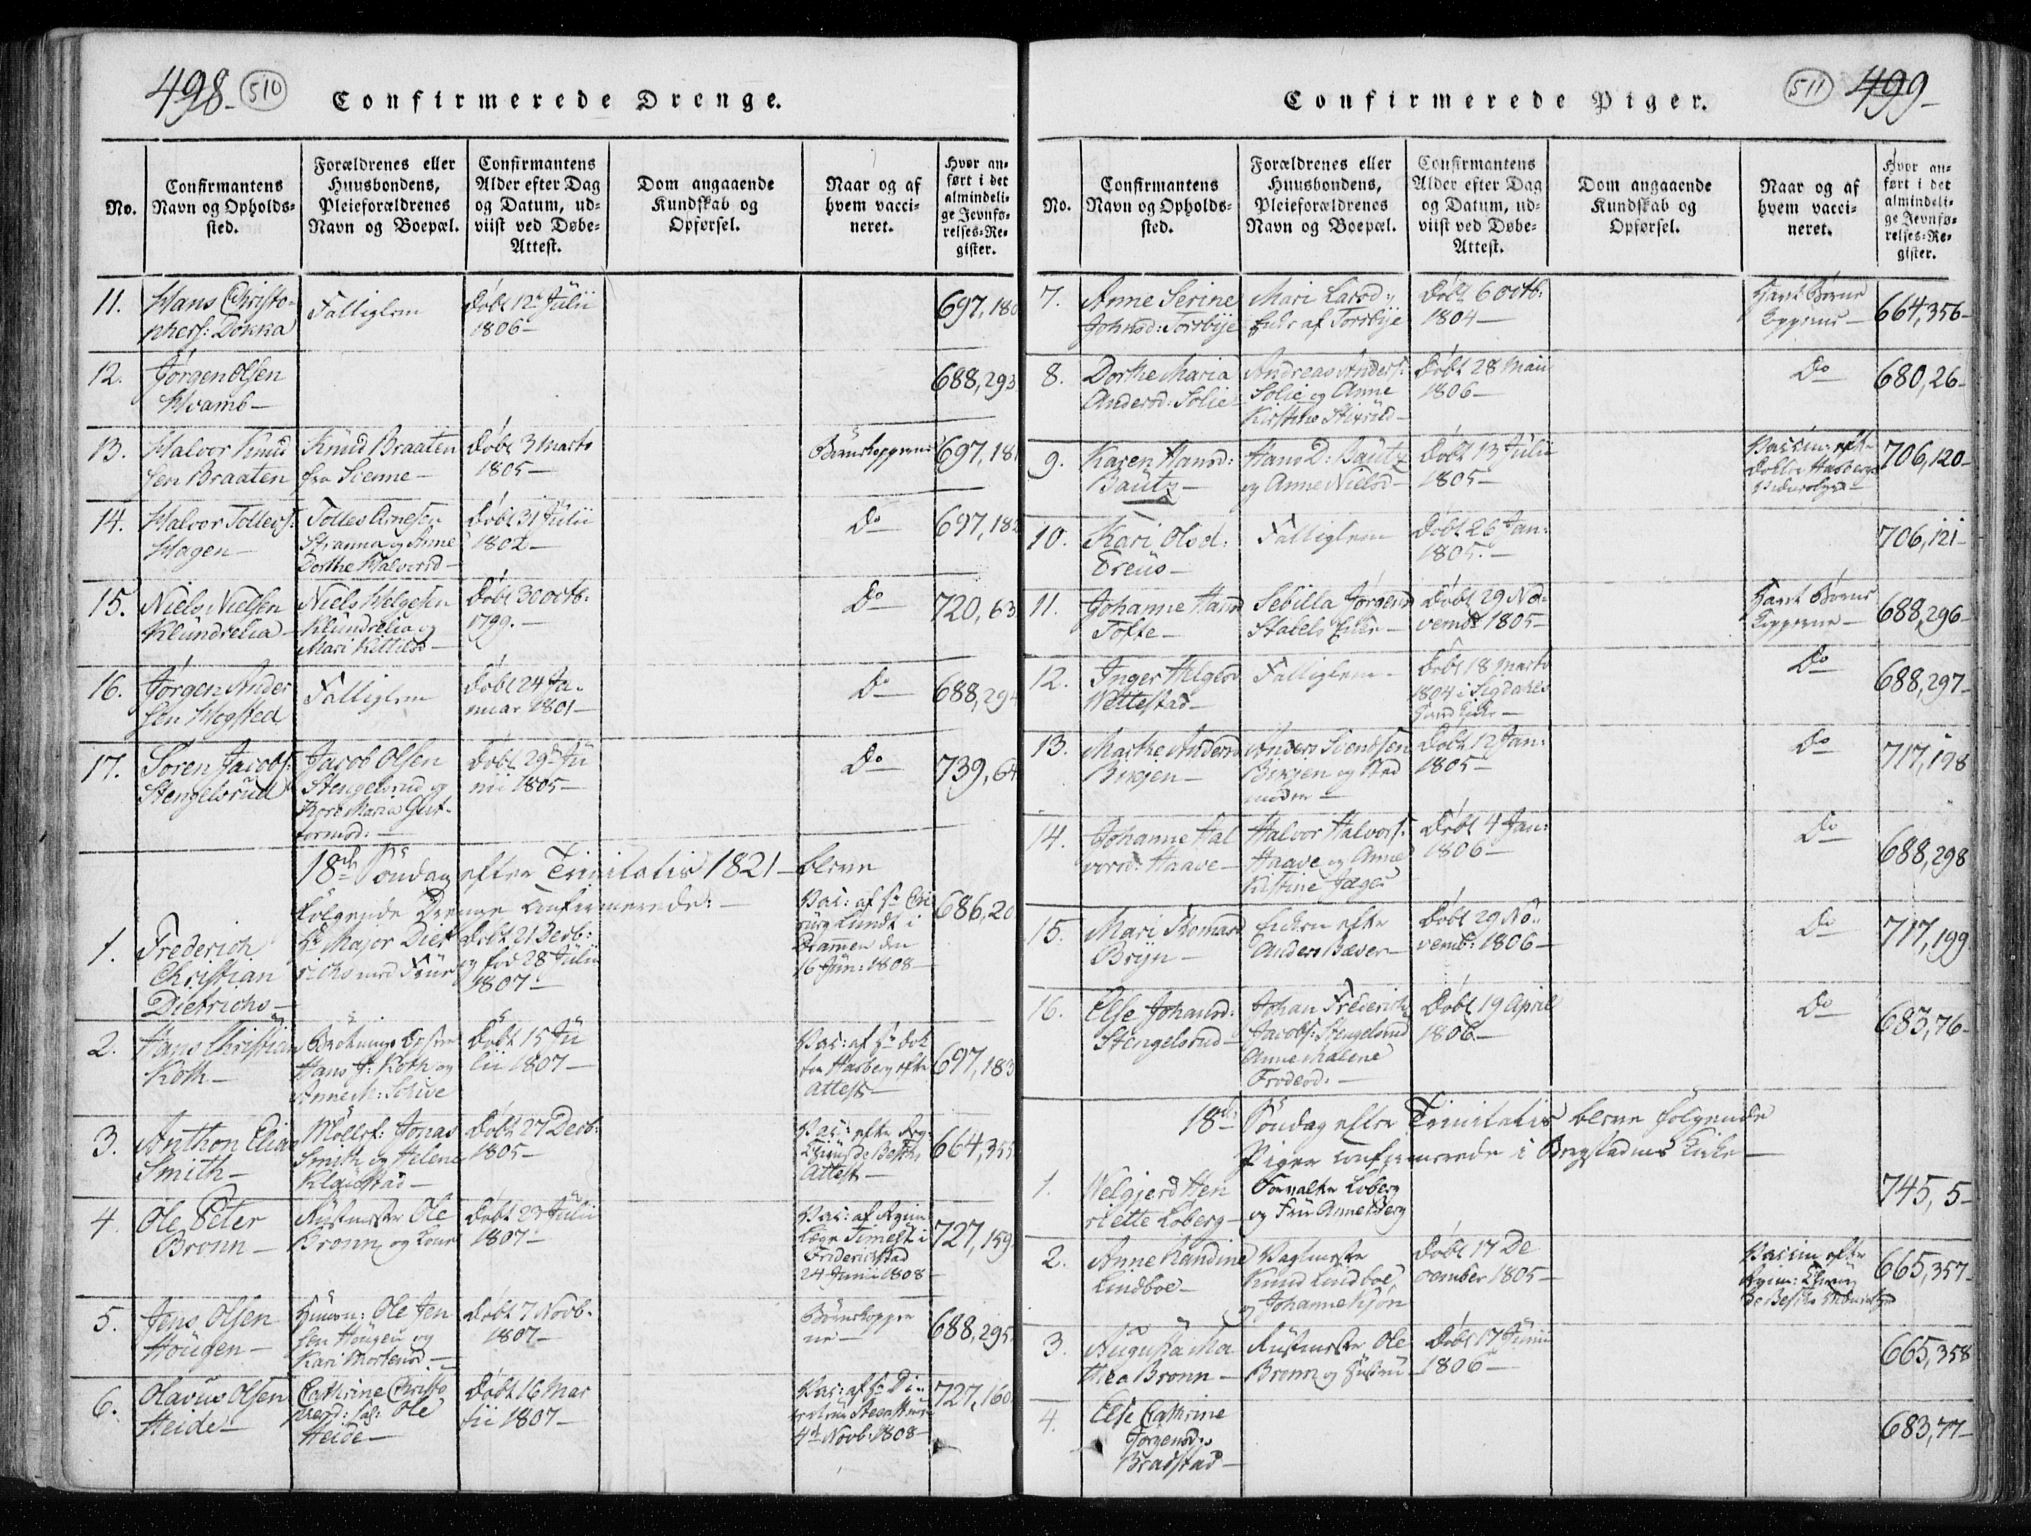 498-
510
Confirmerede Drenge.
No.
Confirmantens
Navn og Opholds-
sted.
Forældrenes eller
Huusbondens,
Pleieforældrenes
Navn og Boepæl.
Confirmantens
Alder efter Dag
og Datum, ud-
viist ved Døbe-
Attest.
Dom angaaende
Kundskab og
Opførsel.
Naar og af
hvem vacci-
neret.
Hvor an-
ført i det
almindeli-
ge Jevnfø-
relses-Re-
gister.
11. Hans Christo-
phers: Dokka
Falliglem
Døbt 12te Julii
1806-
697,180
12. Jørgen Olsen
Hvamb-
688,293
13. Halvor Knud
sen Braaten
Knud Braaten
fra Skenne-
Døbt 3 Marts
1805-
Børnekopperne
697,181
14. Halvor Tollefs:
Hagen-
Tollef Arnesen
Stranna og Anne
Dorthe Halvorsd-
Døbt 31 Julii
1802-
Do
697,182
15. Niels Nielsen
Klundrelia-
Niels Helgesen
Klundrelia og
Mari Kittilsd-
Døbt 30 Octb:
1799.-
Do
720,63
16. Jørgen Ander
sen Hogsted
Falliglem
Døbt 24 Ja-
nuar 1801-
Do
688,294
17. Søren Jacobs:
Stengelsrud
Jacob Olsen
Stengelsrud og
Maria Gut-
tormsd:-
Døbt 29de Ju
nii 1805-
Do
739,64
18de Søndag efter Trinitatis 1821- bleve
følgende Drenge Confirmerede:-
1. Frederich
Christian
Dietrichs-
Hr Major Diet
richs med Frue
Døbt 21 Decb:
og fød 28 Julii
1807-
Vac: af Hr Chi
rurg Lundt i
Dramen den
16 Jun: 1808-
686,20
2. Hans Christian
Koth-
Hans H: Koth og
Anne M: Schive
Døbt 15 Ju
lii 1807-
Vac: af Hr Dok
tor Hasberg efter
Attest-
697,183
3. Anthon Elias
Smith-
Jonas
Smith og Helene
Klavestad-
Døbt 27 Decb:
1805-
Vac: efter Reg:
Attest-
664,355
4. Ole Peter
Bronn-
Rustmester Ole
Bronn og Kone
Døbt 23 Julii
1807-
Vac: af Regim:
Læge i
Frederichstad
24 Junii 1808-
727,159
5. Jens Olsen
Hougen-
Huusm: Ole Jen
sen Hougen og
Kari Mortensd-
Døbt 7 Novb-
1807-
Børnekopper
ne-
688,295
6. Olavus Olsen
Heide-
Cathrine Christo
phersd: sal: Ole
Heide-
Døbt 16 Mar
tii 1807-
Vac: af Hr
4de Novb: 1808-
727,160
511
499-
Confirmerede Piger.
No.
Confirmantens
Navn og Opholds-
sted.
Forældrenes eller
Huusbondens,
Pleieforældrenes
Navn og Boepæl.
Confirmantens
Alder efter Dag
og Datum, ud-
viist ved Døbe-
Attest.
Dom angaaende
Kundskab og
Opførsel.
Naar og af
hvem vacci-
neret.
Hvor an-
ført i det
almindeli-
ge Jevnfø-
relses-Re-
gister.
7. Anne Serine
Johnsd: Torsbye
Mari Larsd:
Enke af Torsbye
Døbt 6 Octb:
1804-
Havt Børne
Kopperne-
664,356-
8. Dorthe Maria
Andersd: Solie
Andreas Anders:
Solie og Anne
Kirstine
Døbt 28 Maii
1806-
Do
680,26-
9. Karen Hansd:
Bautz-
Hans D: Bautz
og Anne Nielsd-
Døbt 13 Julii
1805-
Vaccin: efter
Doktor Hasbergs
706,120-
10. Kari Olsd:
Falliglem
Døbt 26 Jan:
1805.-
706,121-
11. Johanne Hansd
Tofte-
Sebilla Jørgensd
Enke-
Døbt 29 No-
vemb 1805-
Havt Børne
Kopperne-
688,296-
12. Inger Helgesd
Nettestad-
Falliglem-
Døbt 18 Marts
1804 i Sigdahls
Hoved Kirke-
Do
688,297-
13. Marthe Andersd
Berjen-
Anders Svendsen
Berjen og Sted
moder-
Døbt 12 Jan:
1805-
Do
717,198
14. Johanne Hal
vorsd: Haave-
Halvor Halvors:
Haave og Anne
Kistine Jæger
Døbt 4 Jan:
1806-
Do
688,298
15. Mari
Bryn-
Enken efter
Anders Bæver-
Døbt 29 No-
vemb: 1806-
Do
717,199
16. Else Johansd:
Stengelsrud-
Johan Frederich
Jacobs: Stengelsrud
Anne Malene
Fredersd:-
Døbt 19 April
1806-
Do
683,76-
18de Søndag efter Trinitatis bleve følgende
Piger confirmerede i Bergstadens Kirke-
1. Welgjerd Hen
riette Loberg-
Forvalter Loberg
og Frue Anne
745,5-
2. Anne Randine
Lindboe-
Vagtmester
Knud Lindboe
og Johanne Kjøn
Døbt 17 De
cember 1805-
Vaccin efter
665,357-
3. Augusta Ma
thea Bronn-
Rustmester Ole
Bronn og Hustru
Døbt 17 Junii
1806-
665,358
4. Else Cathrine
Jørgensd:
Bradstad-
683,77-